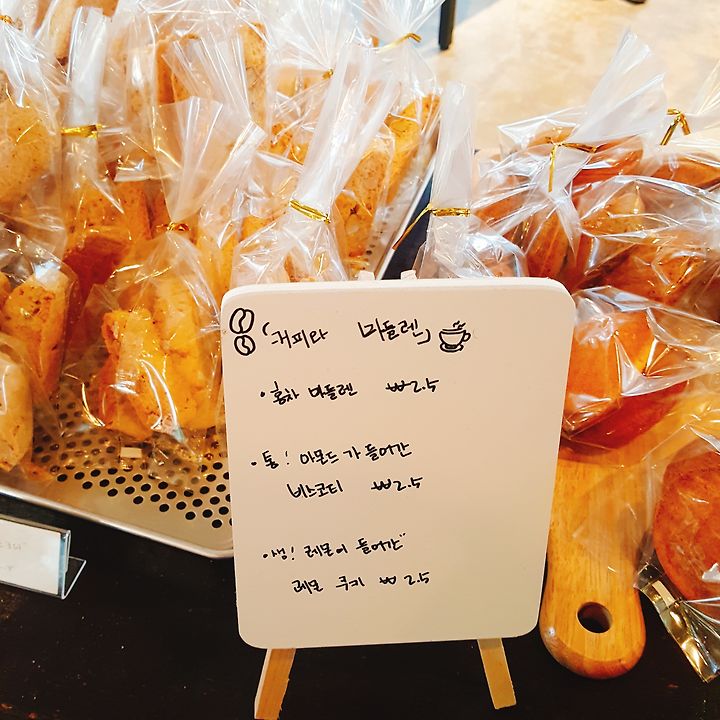 「커피라 마들렌」
• 홍차 마들렌 ₩2.5
• 통! 아몬드가 들어간
비스코티 ₩2.5
• 생! 레몬이 들어간
레몬 쿠키 ₩2.5